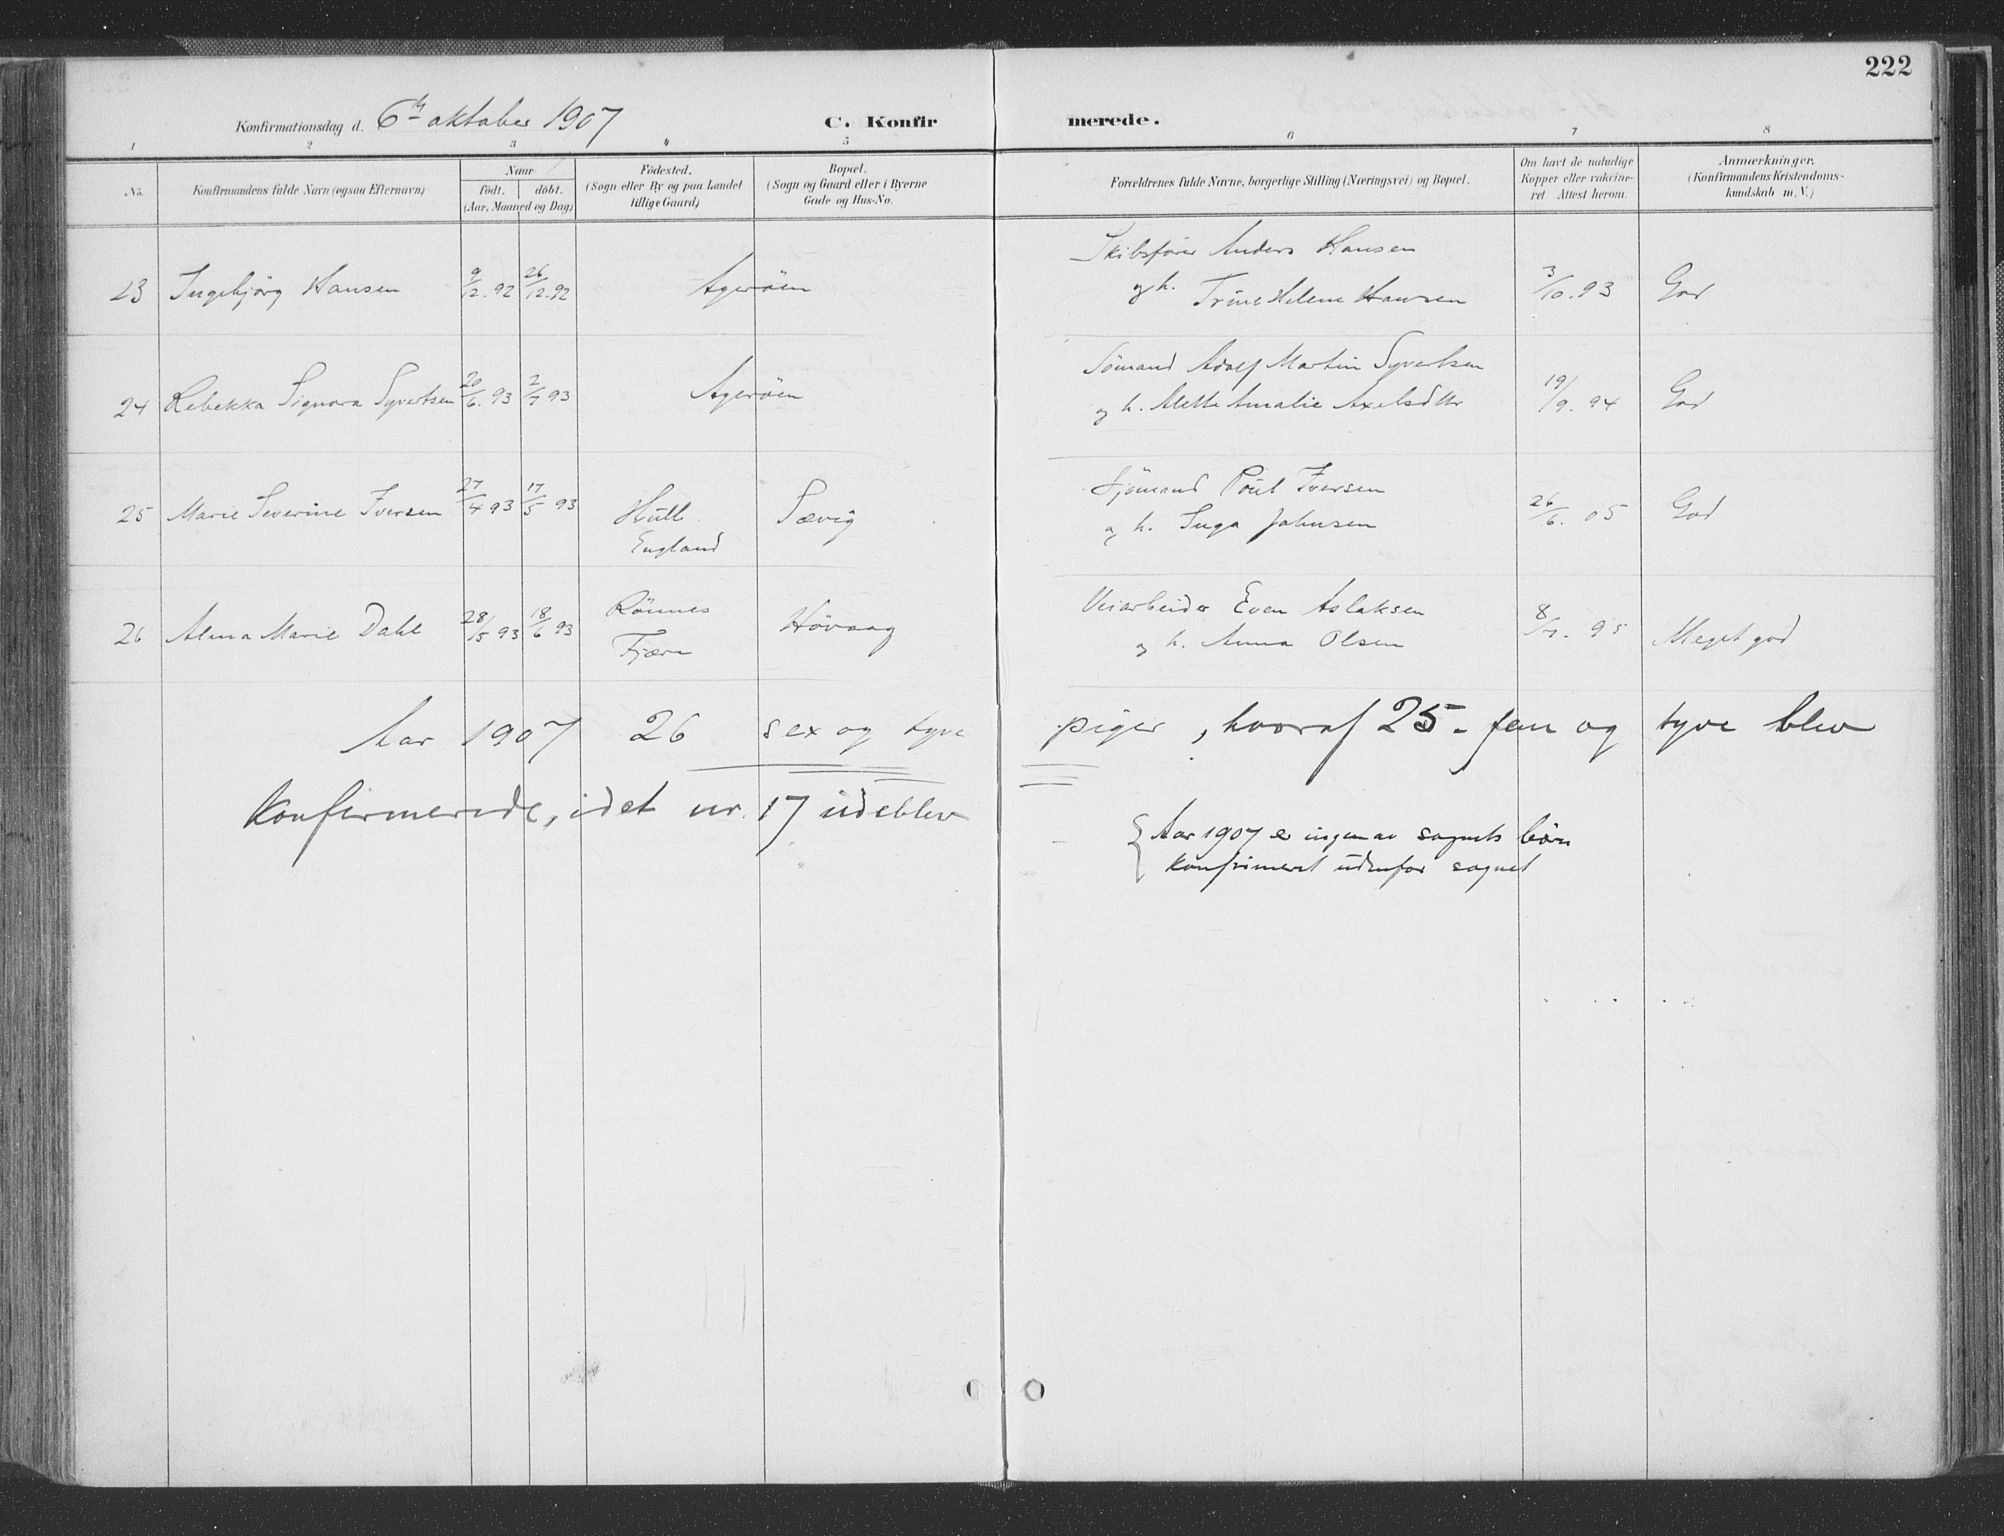 222
Konfirmationsdag d. 6te oktober 1907 C. Konfirmerede.
1 2 3 4 5 6 7 8
No. Konfirmandens fulde Navn (ogsaa Efternavn) Naar födt. döbt. (Aar, Maaned og Dag) Födested. (Sogn eller By og paa Landet tillige Gaard) Bopæl. (Sogn og Gaard eller i Byerne Gade og Hus-No. Forældrenes fulde Navne, borgerlige Stilling (Næringsvei) og Bopæl. Om havt de naturlige Kopper eller vakcineret Attest herom. Anmærkninger. (Konfirmandens Kristendomskundskab m. V.)
Skibsfører Anders Hansen
23 Ingebjörg Hansen 9/12.92 26/12.92 Ageröen og h. Trine Helene Hansen 3/10.93 God
Sömand Adolf Martin Syvertsen
24 Rebekka Signora Syvertsen 20/6.93 2/7 93 Ageröen og h. Mette Amalie Axelsdtr 19/9.94 God
Sjömand Poul Iversen
25 Marie Severine Iversen 27/4 93 17/5 93 Hull Sævig og h. Inga Johnsen 26/6.05 God
England
Rönnes Veiarbeider Even Aslaksen
26 Alma Marie Dahl 28/5 93 18/6 93 Fjære Hövaag og h. Anna Olsen 8/7.95 Meget god
Aar 1907 26 sex og tyve piger, hvoraf 25 - fem og tyve blev
Konfirmerede, idet nr. 17 udeblev
Aar 1907 er ingen av sognets börn
konfirmeret udenfor sognet